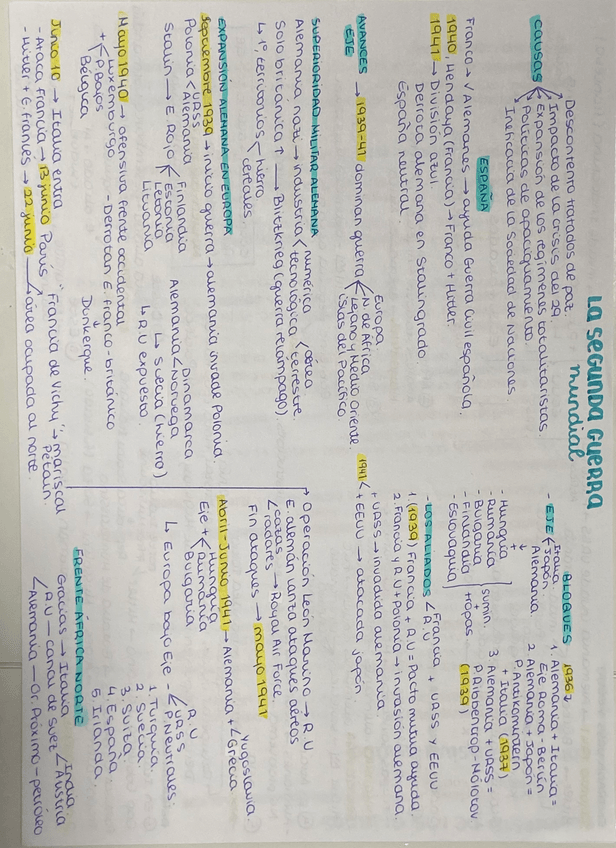 LA SEGUNDA GUERRA
mundial
CAUSAS
Descontento tratados de paz.
Impacto de la crisis del 29.
Expansión de los regímenes totalitaristas.
Políticas de apaciguamiento.
Ineficacia de la Sociedad de Naciones.
ESPAÑA
Franco → √ Alemanes → ayuda Guerra Civil española.
1940 Hendaya (Francia) → Franco + Hitler.
1941 → División azul.
Derrota alemana en Stalingrado.
España neutral.
BLOQUES
- EJE
Italia
Japón
Alemania
+
- Hungría
- Rumanía
- Bulgaria
- Finlandia
- Eslovaquia
sumin.
+
tropas
1936
1 Alemania + Italia =
Eje Roma-Berlín
2 Alemania + Japón =
P. Antikomintern
+ Italia (1937)
3 Alemania + URSS =
P. Ribbentrop-Mólotov
(1939)
- LOS ALIADOS
Francia
R.U
+ URSS y EEUU
1. (1939) Francia + R.U = Pacto mutua ayuda
2. Francia y R.U + Polonia → invasión alemana.
AVANCES EJE → 1939-41 dominan guerra
Europa
N de África
Lejano y Medio oriente
Islas del Pacífico
1941
+ URSS → invadida alemania
+ EEUU → atacada japón
SUPERIORIDAD MILITAR ALEMANA
Alemania nazi → industria
numérica
tecnológica
aérea
terrestre
Solo britanica ↑ → Blitzkrieg (guerra relámpago)
↳ 1º territorios
hierro
cereales
EXPANSIÓN ALEMANA EN EUROPA
Septiembre 1939 → inicio guerra → alemania invade Polonia.
Polonia
URSS
Alemania
Stalin → E. Rojo
Finlandia
Estonia
Letonia
Lituania
Alemania
Dinamarca
Noruega
↳ Suecia (hierro)
↳ R.U expuesto.
Mayo 1940 → ofensiva frente occidental
+
Luxemburgo
P. Bajos
Bélgica
- Derrotan E. franco-británico
↓
Dunkerque.
Junio 10 → Italia entra
- Ataca Francia → 13 junio París
- Hitler + G. francés → 22 junio
"Francia de Vichy" → mariscal Pétain.
área ocupada al norte.
→ Operación León Marino → R.U
E. alemán lanza ataques aéreos
costas
radares
→ Royal Air Force
Fin ataques → mayo 1941
Abril-Junio 1941 → Alemania +
Yugoslavia.
Grecia.
Eje +
Hungría
Rumanía
Bulgaria
↳ Europa bajo Eje -
R.U
URSS
P. Neutrales:
1. Turquía.
2. Suecia.
3. Suiza.
4. España.
5 Irlanda.
FRENTE ÁFRICA NORTE
Gracias → Italia
R.U - canal de Suez
India
Alemania - Or. Próximo - petróleo